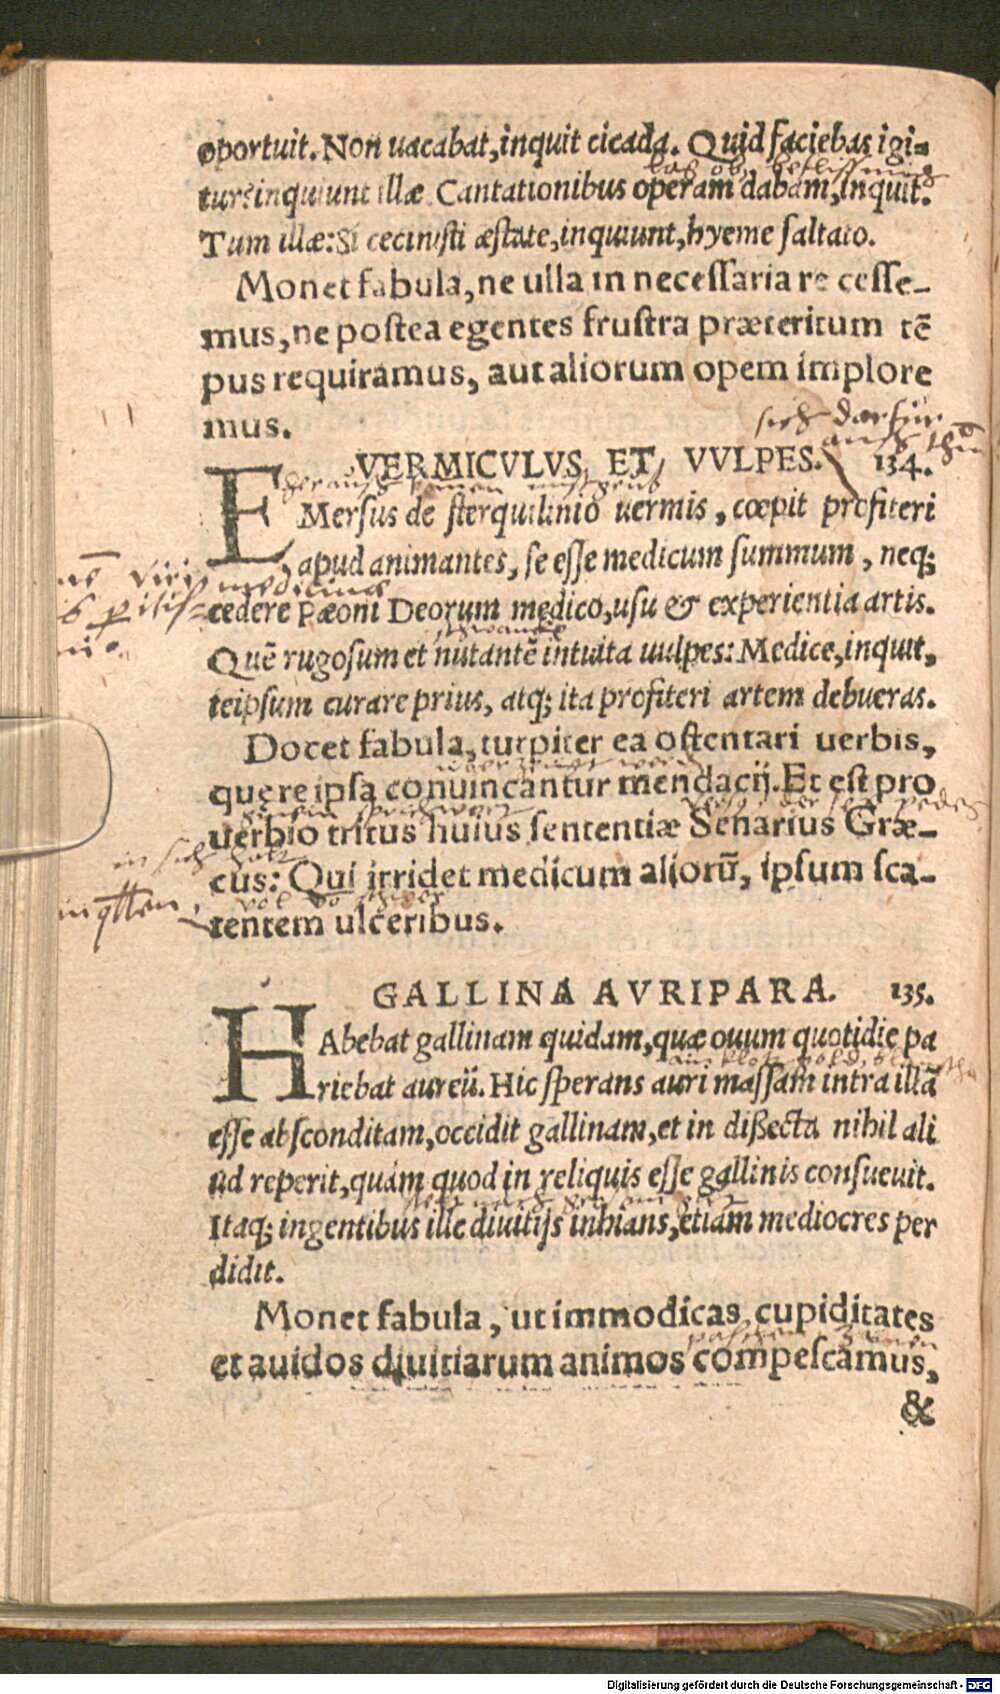 oportuit. Non uacabat, inquit cicada. Quid faciebas igi=
tur? inquiunt illæ. Cantationibus operam dabam, inquit.
Tum illæ: Si cecinisti æstate, inquiunt, hyeme saltato.
Monet fabula, ne ulla in necessaria re cesse-
mus, ne postea egentes frustra præteritum tẽ
pus requiramus, aut aliorum opem implore
mus.
sich darfür
VERMICVLVS ET VVLPES. 134.
EMersus de sterquilinio uermis, cœpit profiteri
apud animantes, se esse medicum summum, neq;
medicinæ
cedere Pæoni Deorum medico, usu & experientia artis.
Quẽ rugosum et nutantẽ intuita uulpes: Medice, inquit,
teipsum curare prius, atq; ita profiteri artem debueras.
Docet fabula, turpiter ea ostentari uerbis,
quere ipsa conuincantur mendacij. Et est pro
uerbio tritus huius sententiæ Senarius Græ-
cus: Qui irridet medicum aliorũ, ipsum sca-
tentem ulceribus.
GALLINA AVRIPARA. 135.
HAbebat gallinam quidam, quæ ouum quotidie pa
riebat aureũ. Hic sperans auri massam intra illã
esse absconditam, occidit gallinam, et in dißecta nihil ali
ud reperit, quàm quod in reliquis esse gallinis consueuit.
Itaq; ingentibus ille diuitijs inhians, etiam mediocres per
didit.
Monet fabula, ut immodicas cupiditates
et auidos diuitiarum animos compescamus,
&
Digitalisierung gefördert durch die Deutsche Forschungsgemeinschaft - DFG